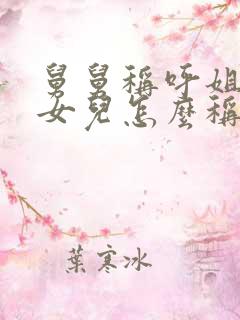 舅舅稱呼姐
女兒怎麼稱
葉寒冰